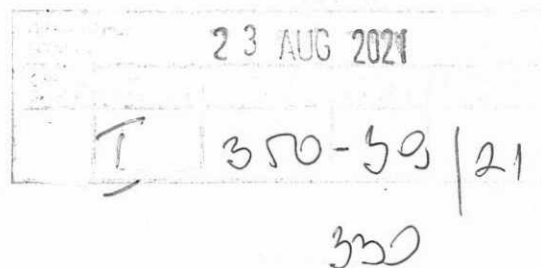 23 AUG 2021
I 350-39/21
330